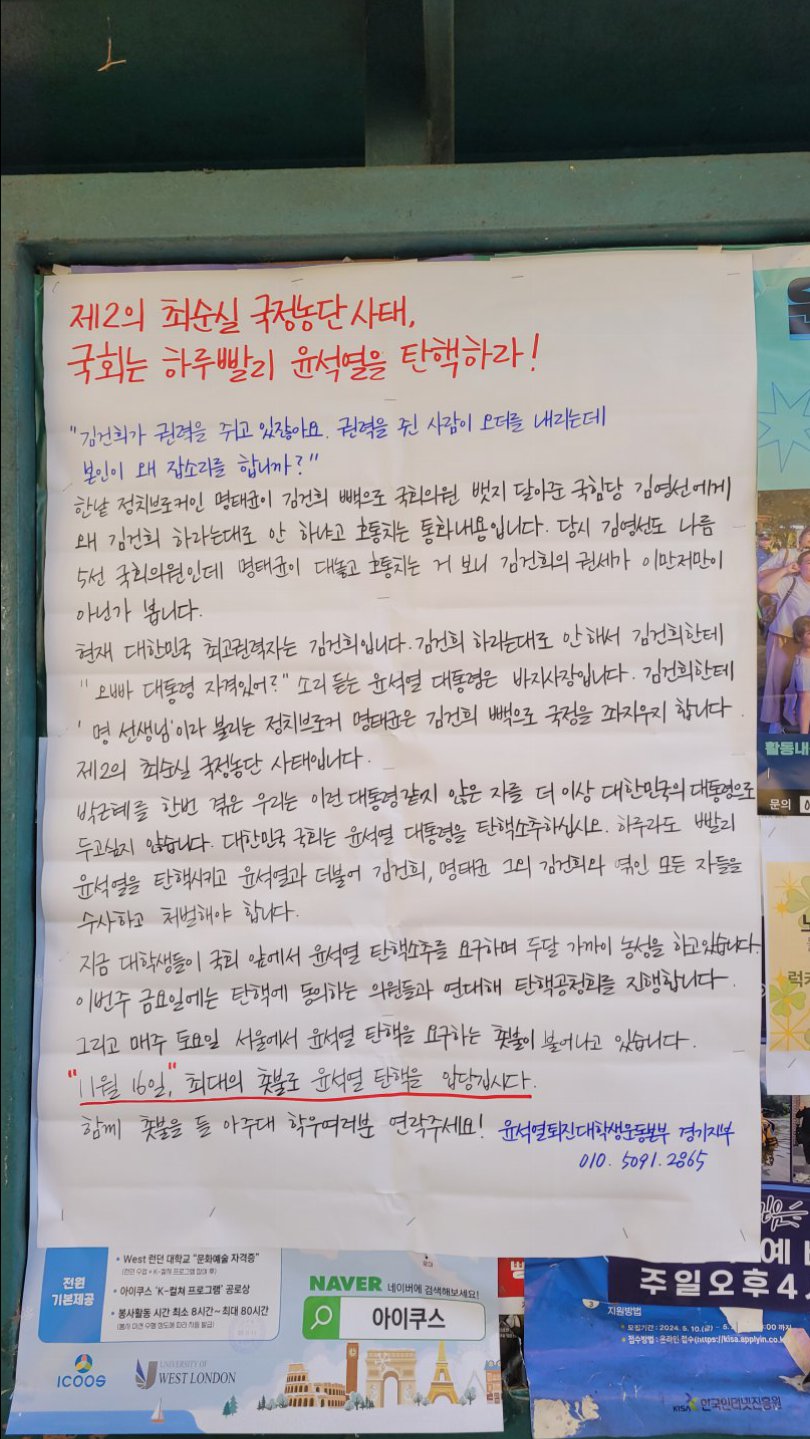 제2의 최순실 국정농단 사태,
국회는 하루빨리 윤석열을 탄핵하라!
"김건희가 권력을 쥐고 있잖아요. 권력을 쥔 사람이 오더를 내리는데
본인이 왜 잡소리를 합니까?"
한낱 정치브로커인 명태균이 김건희 빽으로 국회의원 뱃지 달아준 국힘당 김영선에게
왜 김건희 하라는대로 안 하냐고 호통치는 통화내용입니다. 당시 김영선도 나름
5선 국회의원인데 명태균이 대놓고 호통치는 거 보니 김건희의 권세가 이만저만이
아닌가 봅니다.
현재 대한민국 최고권력자는 김건희입니다. 김건희 하라는대로 안해서 김건희한테
"오빠 대통령 자격있어?" 소리 듣는 윤석열 대통령은 바지사장입니다. 김건희한테
'명 선생님'이라 불리는 정치브로커 명태균은 김건희 빽으로 국정을 좌지우지 합니다.
제2의 최순실 국정농단 사태입니다.
박근혜를 한번 겪은 우리는 이런 대통령같지 않은 자를 더 이상 대한민국의 대통령으로
두고싶지 않습니다. 대한민국 국회는 윤석열 대통령을 탄핵소추하십시오. 하루라도 빨리
윤석열을 탄핵시키고 윤석열과 더불어 김건희, 명태균 그외 김건희와 엮인 모든 자들을
수사하고 처벌해야 합니다.
지금 대학생들이 국회 앞에서 윤석열 탄핵소추를 요구하며 두달 가까이 농성을 하고있습니다.
이번주 금요일에는 탄핵에 동의하는 의원들과 연대해 탄핵공청회를 진행합니다.
그리고 매주 토요일 서울에서 윤석열 탄핵을 요구하는 촛불이 불어나고 있습니다.
"11월 16일," 최대의 촛불로 윤석열 탄핵을 앞당깁시다.
함께 촛불을 들 아주대 학우여러분 연락주세요! 윤석열퇴진대학생운동본부 경기지부
010. 5091. 2865
활동내
문의
럭키
전원
기본제공
• West 런던 대학교 "문화예술 자격증"
• 아이쿠스 'K-컬쳐 프로그램' 공로상
• 봉사활동 시간 최소 8시간~ 최대 80시간
ICOOS
UNIVERSITY OF
WEST LONDON
NAVER 네이버에 검색해보세요!
아이쿠스
주일오후4
3 지원방법
• 모집기간 : 2024. 5. 10.(금)
• 접수방법 : 온라인 접수(https://kisa.applyin.co.k
KISA 한국인터넷진흥원